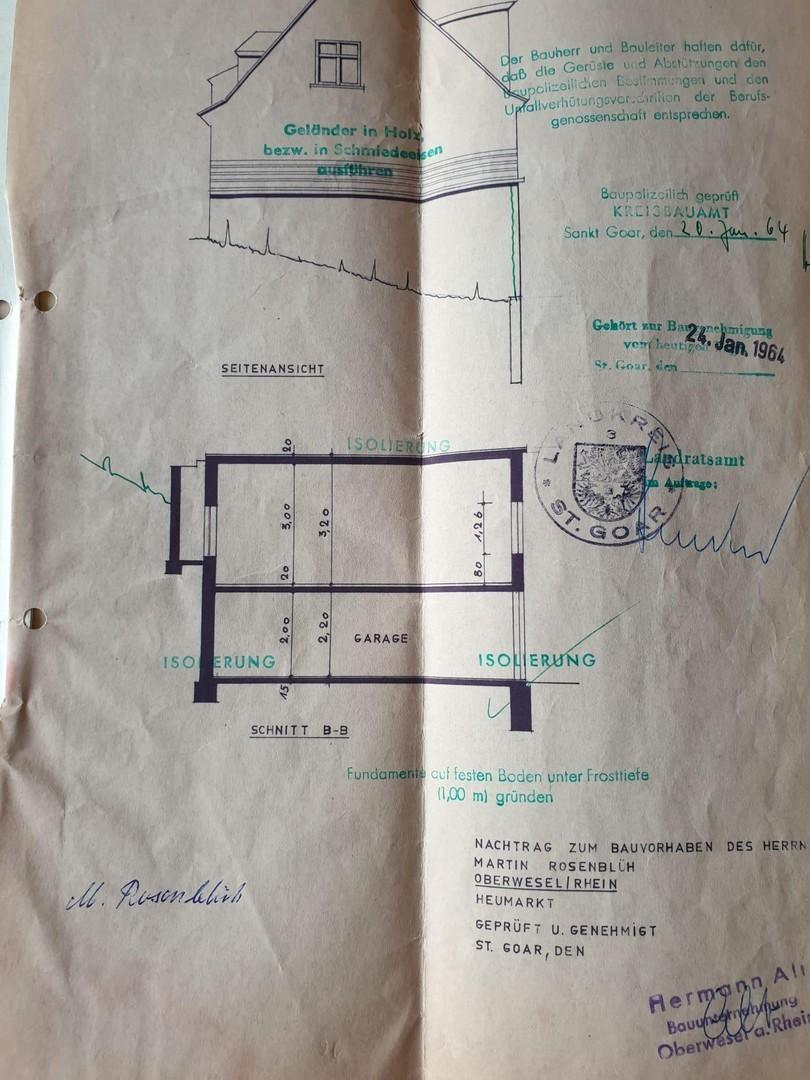 Der Bauherr und Bauleiter haften dafür,
daß die Gerüste und Abstützungen den
Baupolizeilichen Bestimmungen und den
Unfallverhütungsvorschriften der Berufs-
genossenschaft entsprechen.
Geländer in Holz,
bezw. in Schmiedeeisen
ausführen
Baupolizeilich geprüft
KREISBAUAMT
Sankt Goar, den 20. Jan. 64
Gehört zur Baugenehmigung
vom heutigen
24. Jan. 1964
St. Goar, den
SEITENANSICHT
LANDKREIS
3
ST. GOAR
Landratsamt
Im Auftrage:
ISOLIERUNG
20
3,00
3,20
1,26
80
20
2,00
2,20
GARAGE
ISOLIERUNG
ISOLIERUNG
15
SCHNITT B-B
Fundamente auf festen Boden unter Frosttiefe
(1,00 m) gründen
NACHTRAG ZUM BAUVORHABEN DES HERRN
MARTIN ROSENBLÜH
OBERWESEL/RHEIN
HEUMARKT
GEPRÜFT U. GENEHMIGT
ST. GOAR, DEN
M. Rosenblüh
Hermann
Bauunternehmung
Oberwesel a. Rhein